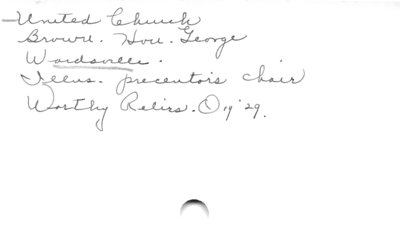 United Church
Brown. Hon. George
Wardsville.
Illus. precentor's chair
Worthy Relics. O 19 '29.